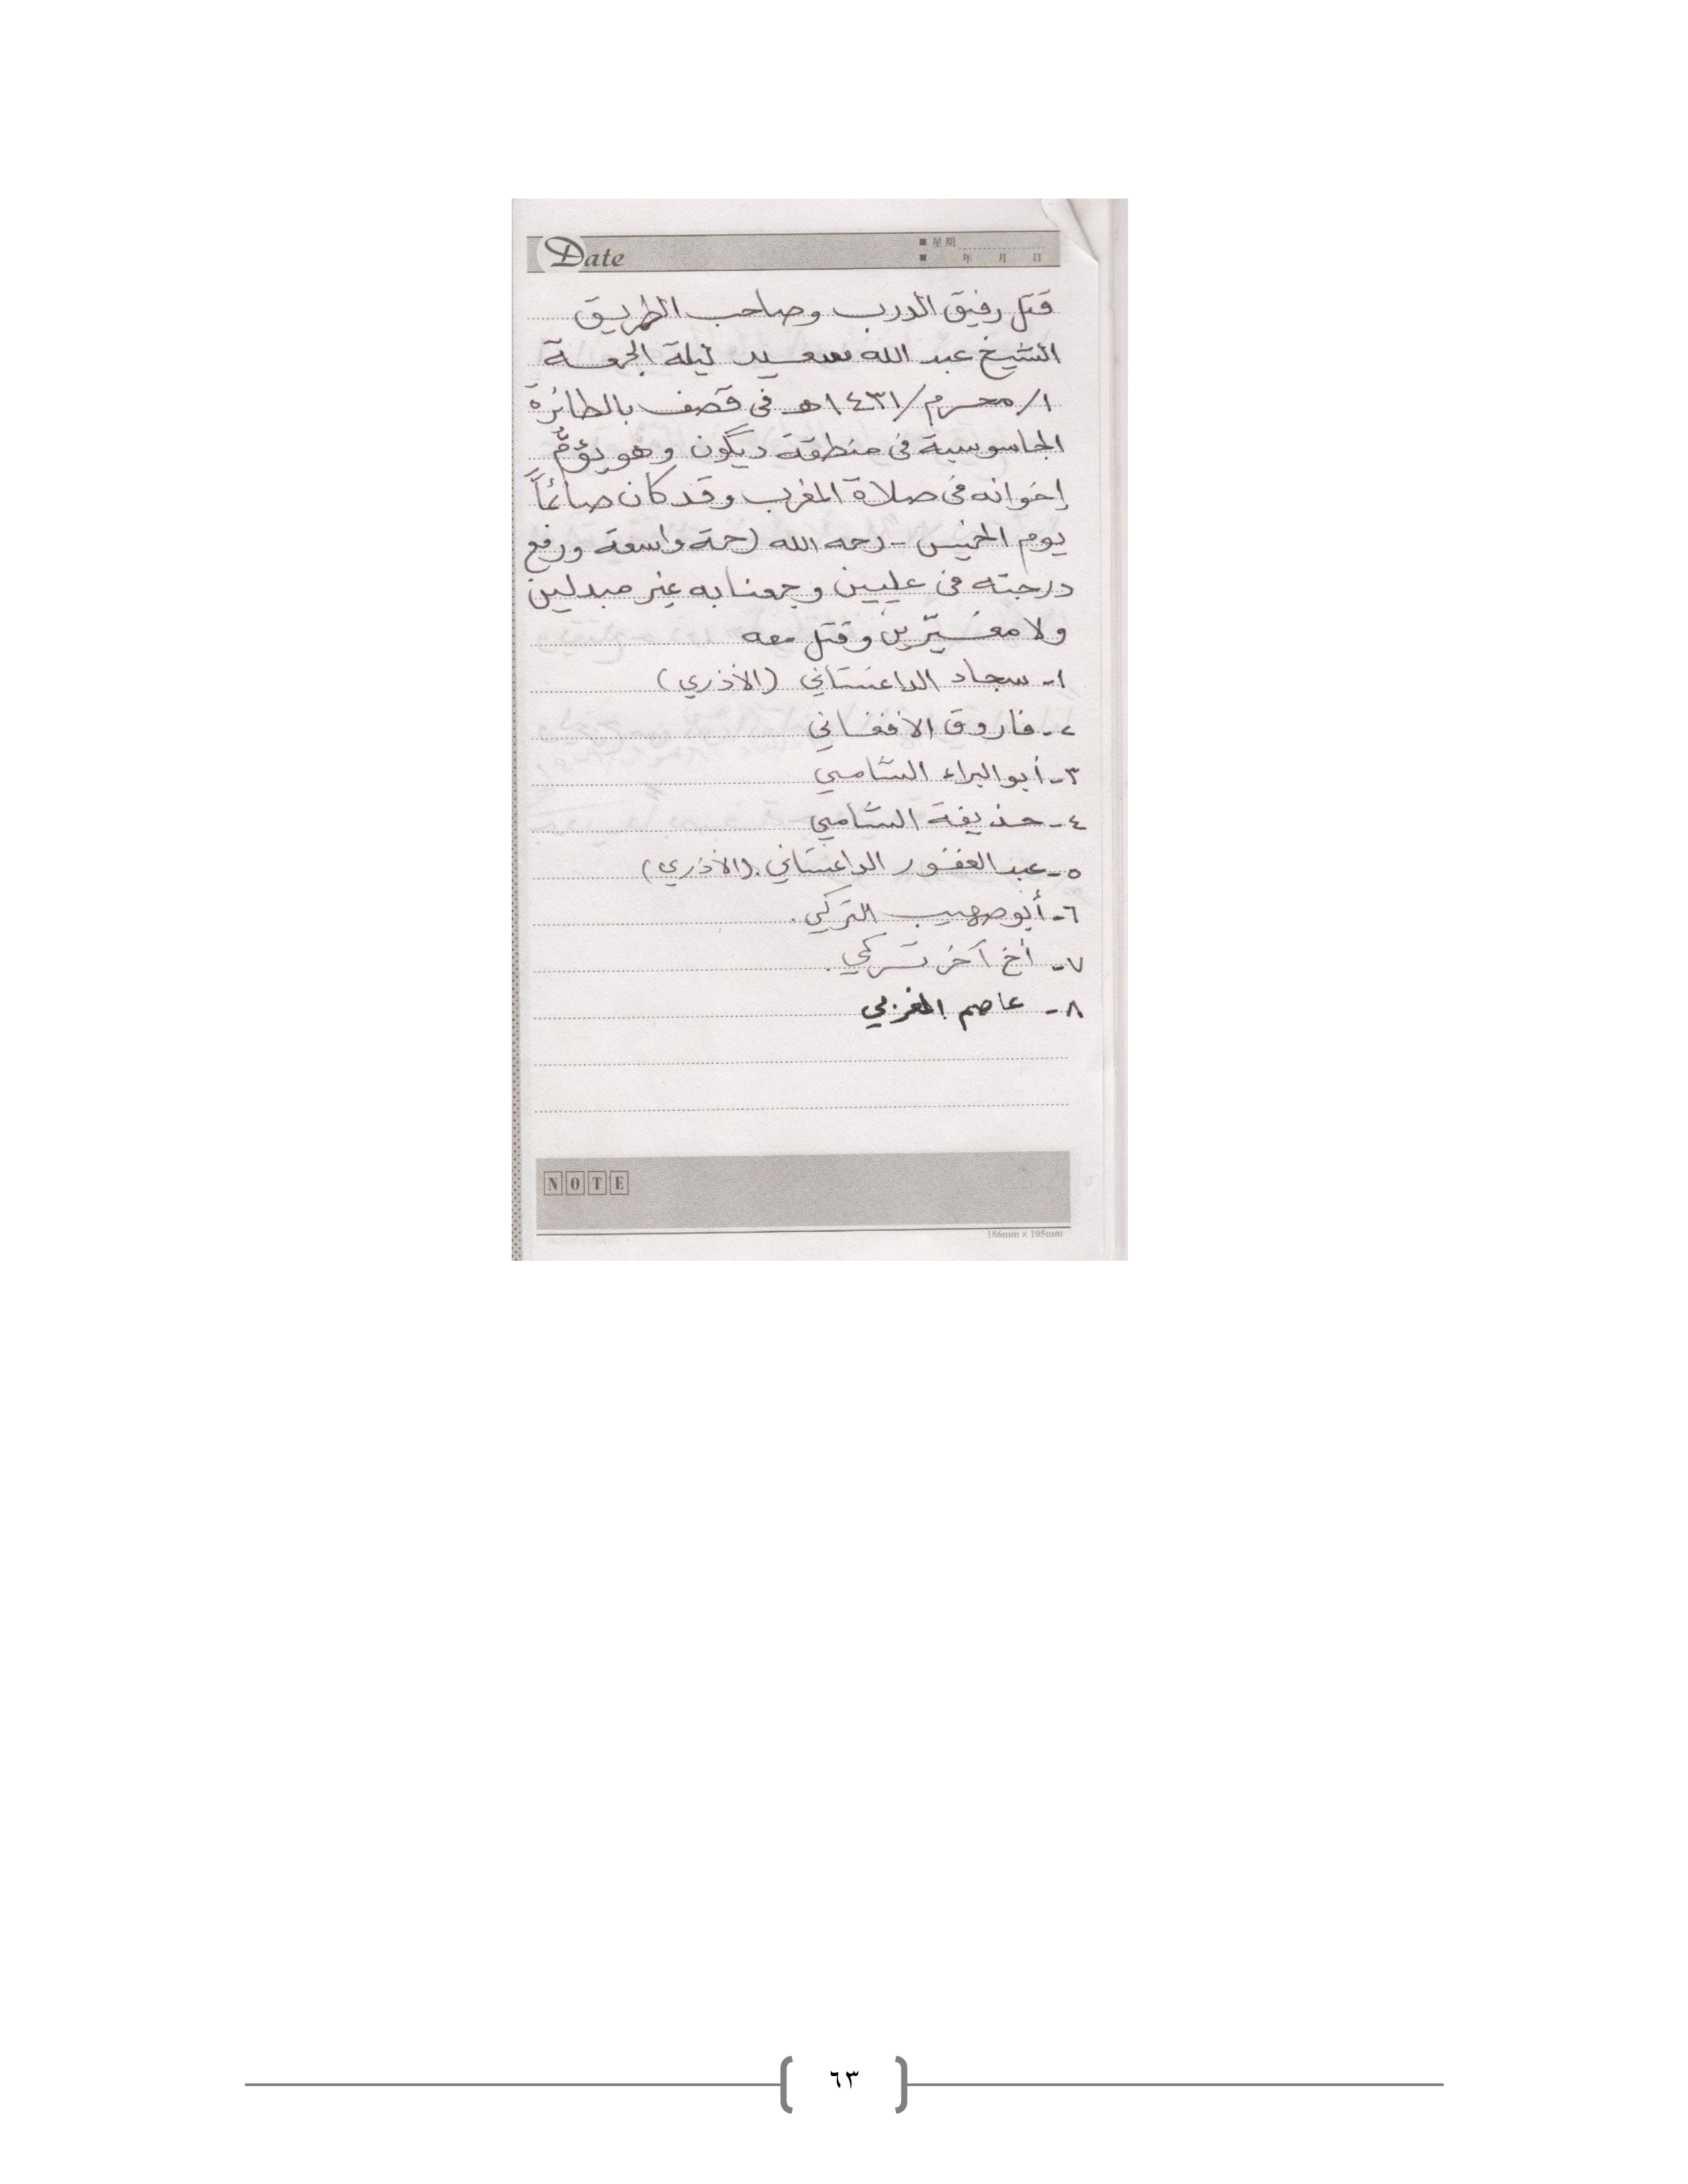 Date
■ 星期
■ 年 月 日
قتل رفيق الدرب وصاحب الطريق
الشيخ عبد الله سعيد ليلة الجمعة
١/محرم/١٤٣١هـ في قصف بالطائرة
الجاسوسية في منطقة ديگون وهو يؤمُّ
إخوانه في صلاة المغرب وقد كان صائماً
يوم الخميس - رحمه الله رحمة واسعة ورفع
درجته في عليين وجمعنا به غير مبدلين
ولا مغيّرين وقتل معه
١- سجاد الداغستاني (الأذري)
٢- فاروق الافغاني
٣- أبو البراء الشامي
٤- حذيفة الشامي
٥- عبد الغفور الداغستاني. (الأذري)
٦- أبو صهيب التركي.
٧- أخ آخر تركي.
٨- عاصم المغربي
NOTE
186mm x 105mm
٦٣